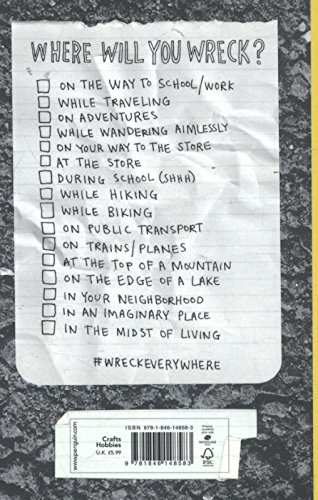 WHERE WILL YOU WRECK?
ON THE WAY TO SCHOOL/WORK
WHILE TRAVELING
ON ADVENTURES
WHILE WANDERING AIMLESSLY
ON YOUR WAY TO THE STORE
AT THE STORE
DURING SCHOOL (SHHH)
WHILE HIKING
WHILE BIKING
ON PUBLIC TRANSPORT
ON TRAINS/PLANES
AT THE TOP OF A MOUNTAIN
ON THE EDGE OF A LAKE
IN YOUR NEIGHBORHOOD
IN AN IMAGINARY PLACE
IN THE MIDST OF LIVING
#WRECKEVERYWHERE
www.penguin.com
Crafts
Hobbies
U.K. £5.99
ISBN 978-1-846-14858-3
9 781846 148583
FSC